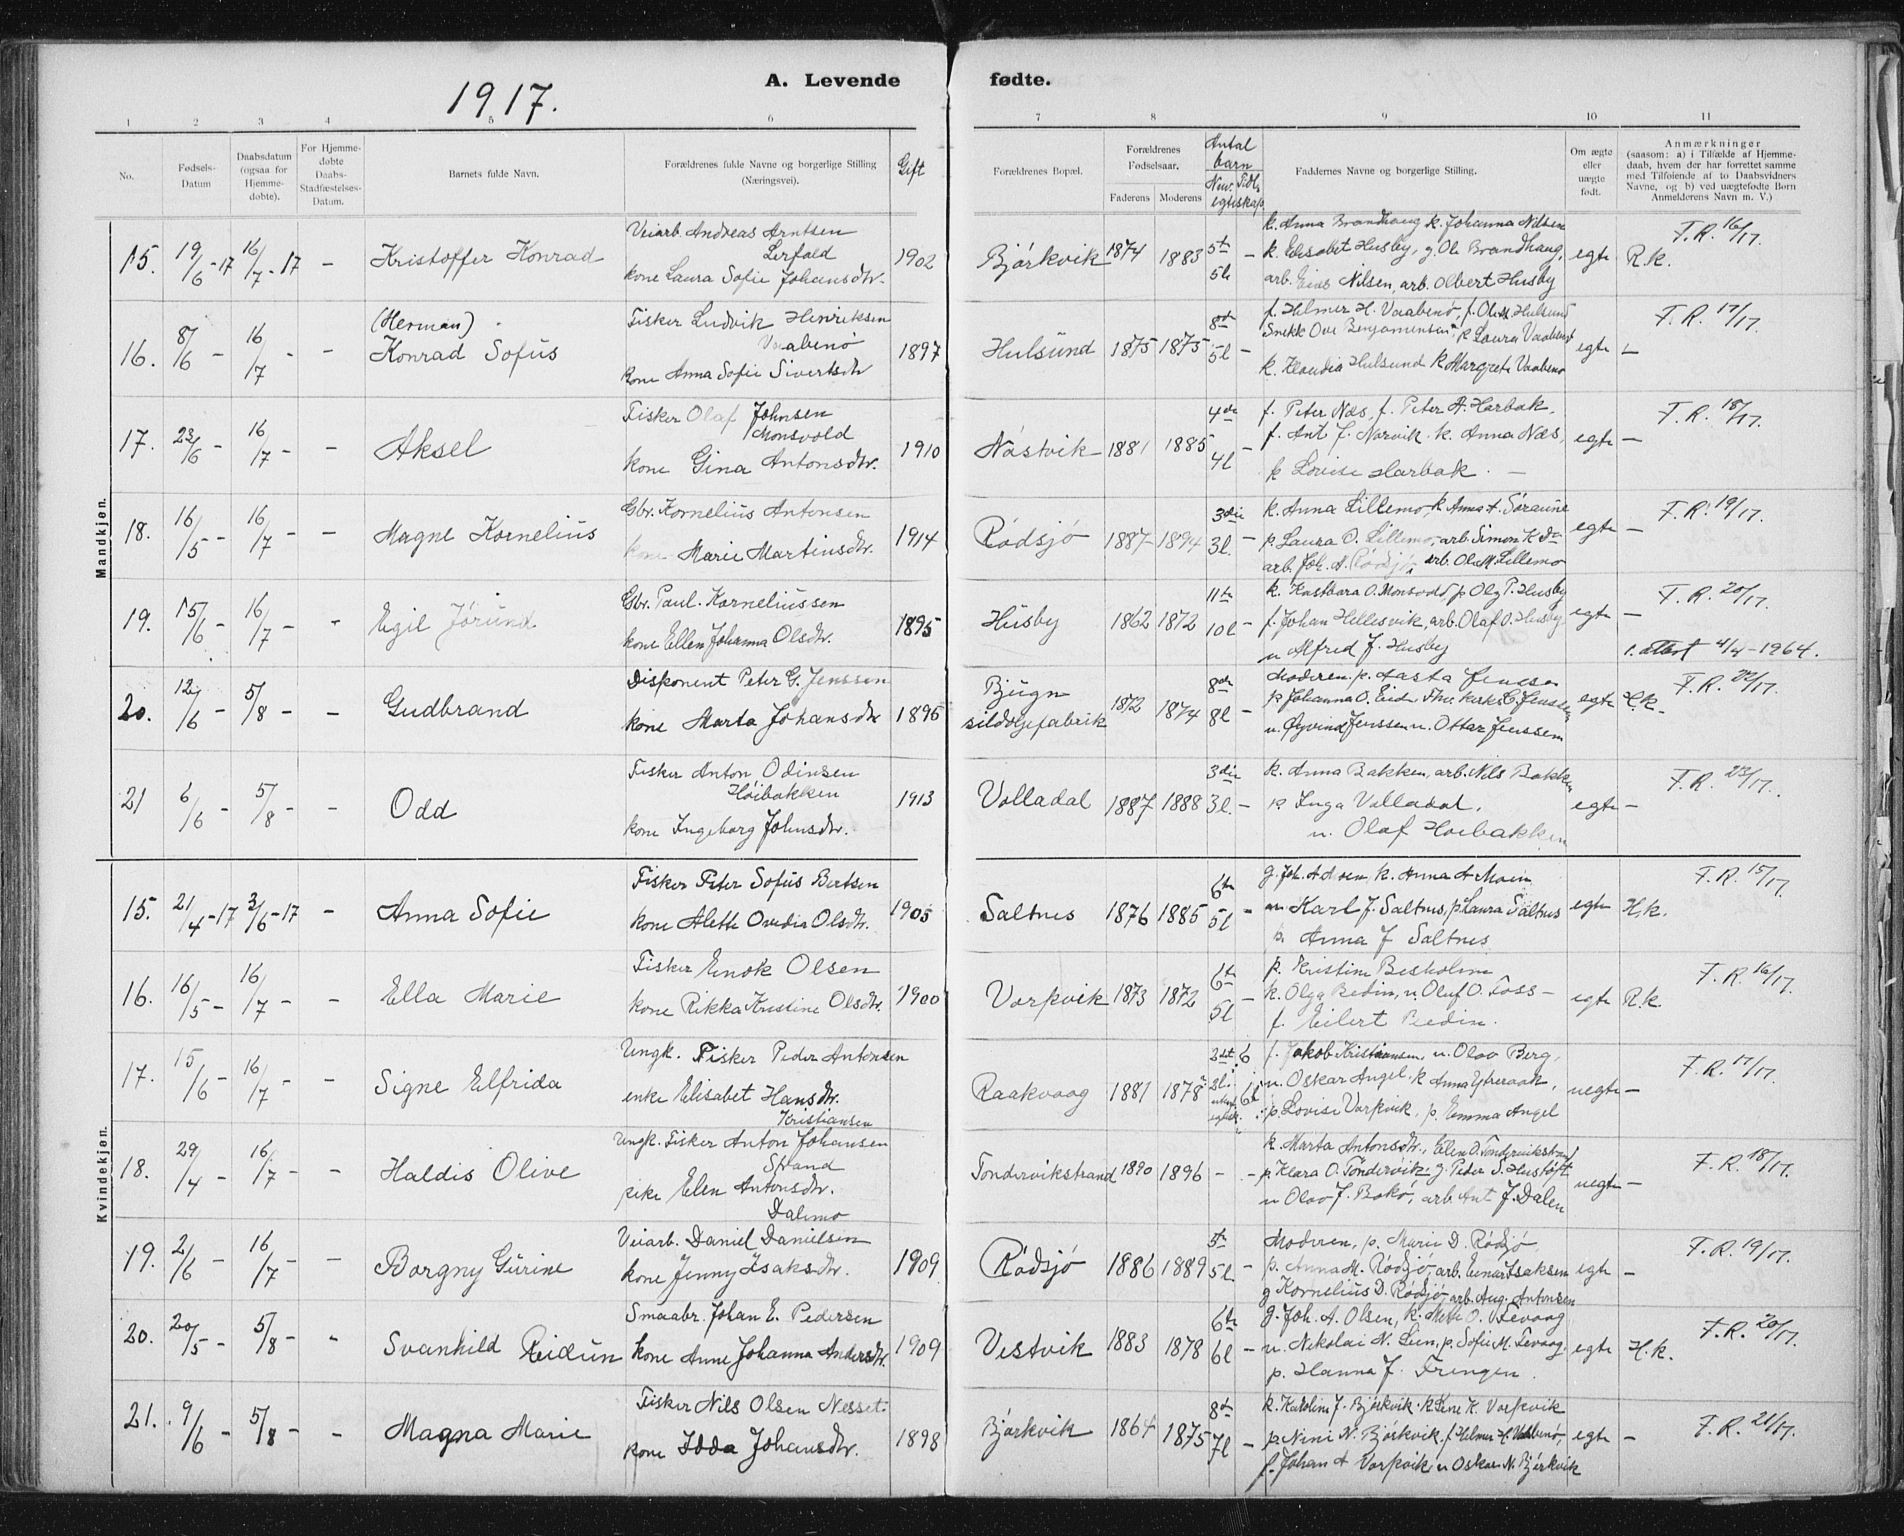 1917.
A. Levende fødte.
1 2 3 4 5 6 7 8 9 10 11
No. Fødsels-Datum Daabsdatum (ogsaa for Hjemmedøbte). For Hjemmedøbte Daabs-Stadfæstelses-Datum. Barnets fulde Navn. Forældrenes fulde Navne og borgerlige Stilling (Næringsvei). Gift Forældrenes Bopæl. Forældrenes Fødselsaar. Faderens Moderens Antal barn Nuv. Tidl. egteskap. Faddernes Navne og borgerlige Stilling. Om ægte eller uægte født. Anmærkninger (saasom: a) i Tilfælde af Hjemmedaab, hvem der har forrettet samme med Tilføiende af to Daabsvidners Navne, og b) ved uægtefødte Børn Anmelderens Navn m. V.)
Mandkjøn.
15. 19/6-17 16/7-17 – Kristoffer Konrad
Veiarb. Andreas Arntsen
Lerfald
kone Laura Sofie Johansdtr.
1902 Bjørkvik 1874 1883 5te 5l –
k. Anna Brandhaug k. Johanna Nilsen
k. Elisabet Husby, g. Ole Brandhaug,
arb. Nilsen, arb. Olbert Husby
egte R.k. F.R. 16/17.
16. 8/6 – 16/7 – – (Herman)
Konrad Sofus
Fisker Ludvik Henriksen
Vaabenø
kone Anna Sofie Sivertsdtr
1897 Hulsund 1875 1875 8de 5l –
f. Helmer H. Vaabenø, f. Hulsund
Snekk Ove Benjaminsen, p Laura Vaabenø
k. Klaudia Hulsund k Margrete Vaabenø
egte – F.R. 17/17.
17. 23/6 – 16/7 – – Aksel
Fisker Olaf Johnsen
Monsvold
kone Gina Antonsdtr.
1910 Nøstvik 1881 1885 4de 4l –
f. Peter Næs, f. Peter A. Harbak,
f. Ant. J. Narvik. k. Anna Næs,
p Lovise Harbak. –
egte – F.R. 18/17.
18. 16/5 – 16/7 – – Magne Kornelius
Gbr. Kornelius Antonsen
kone Marie Martinsdtr.
1914 Rødsjø 1887 1894 3die 3l. –
k. Anna Lillemo, k Anna A. Søraune
p. Laura O. Lillemo, arb. Simon K. do
arb. Joh. A. Rødsjø, arb. Ole M Lillemo
egte – F.R. 19/17.
19. 15/6 – 16/7 – – Egil Jørund
Gbr. Paul Korneliussen
kone Ellen Johanna Olsdtr.
1895 Husby 1862 1872 11te 10l –
k. O. Monsvold p Olg P. Husby
f. Johan Hellesvik, arb. Olaf O. Husby
u Alfred J. Husby
egte – F.R. 20/17.
1. attest 4/4-1964.
20. 12/6 – 5/8 – – Gudbrand
Disponent Peter G. Jenssen
kone Marta Johansdtr
1895 Bjugn sildoljefabrik 1872 1874 8de 8l –
Moderen, p. Aasta Jenssen
p. Johanna O. Eide
u. Øyvind Jenssen u. Ottar Jenssen
egte H.k. F.R. 22/17.
21 6/6 – 5/8 – – Odd
Fisker Anton Odinsen
Høibakken
kone Ingeborg Johnsdtr.
1913 Volladal 1887 1888 3die 3l. –
k. Anna Bakken, arb. Nils Bakken
p. Inga Volladal.
u. Olaf Høibakken
egte – F.R. 23/17.
Kvindekjøn.
15. 21/4-17 3/6-17 – Anna Sofie
Fisker Peter Sofus Bertsen
kone Alette Ovedia Olsdtr.
1905 Saltnes 1876 1885 6te 5l –
g. Joh. k. Anna A Moen
Karl J. Saltnes, p. Laura Saltnes
p. Anna J Saltnes
egte H.k. F.R. 15/17.
16. 16/5 – 16/7 – – Ella Marie
Fisker Enok Olsen
kone Rikka Kristine Olsdtr.
1900 Vorpvik 1873 1872 6te 5l –
p. Kristine Besholm
k. Olga Bedin, u Oluf O. Foss –
f. Eilert Bedin.
egte R.k. F.R. 16/17.
17. 15/6 – 16/7 – – Signe Elfrida
Ungk. Fisker Peder Antonsen
enke Elisabet Hansdtr.
Kristiansen
Raakvaag 1881 1878
f. Jakob Kristiansen, u. Olav Berg,
u. Oskar Angel, k Anna Ytreraak,
p. Lovise Vorpvik, p. Emma Angel
uegte – F.R. 17/17.
18. 29/4 – 16/7 – – Haldis Olive
Ungk. Fisker Anton Johansen
Strand
pike Elen Antonsdtr.
Dalimo
Tøndervikstrand 1890 1896 – –
k. Marta Antonsdtr., Elen O. Tøndervikstrand
p. Klara O. Tøndervik, g. Peter S. Husføft
u Olav J. Bakø, arb. Ant. J. Dalen
uegte – F.R. 18/17.
19. 2/6 – 16/7 – – Borgny Gurine
Veiarb. Daniel Danielsen
kone Jenny Isaksdtr.
1909 Rødsjø 1886 1889 5te 5l –
Moderen, p. Marie D. Rødsjø,
p. Anna M. Rødsjø, arb. Einar Isaksen
g Kornelius D. Rødsjø, arb. Aug. Antonsen
egte – F.R. 19/17.
20. 20/5 – 5/8 – – Svanhild Reidun
Smaabr. Johan E. Pedersen
kone Anne Johanna Andersdtr.
1909 Vestvik 1883 1878 6te 6l –
g. Joh. A. Olsen, k. Mette O. Tevaag
u. Nikolai N. Lien, p. Sofie M. Tevaag
p. Hanna J. Frengen.
egte H.k. F.R. 20/17.
21. 9/6 – 5/8 – – Magna Marie
Fisker Nils Olsen Nesset.
kone Idda Johansdtr.
1898 Bjørkvik 1864 1875 8de 7l –
k. Karolin J. Bjørkvik. k Lene K. Vorpvik
p. Nini N. Bjørkvik, f Helmer H. Vaabenø,
f. Johan A Vorpvik u Oskar N. Bjørkvik
egte – F.R. 21/17.